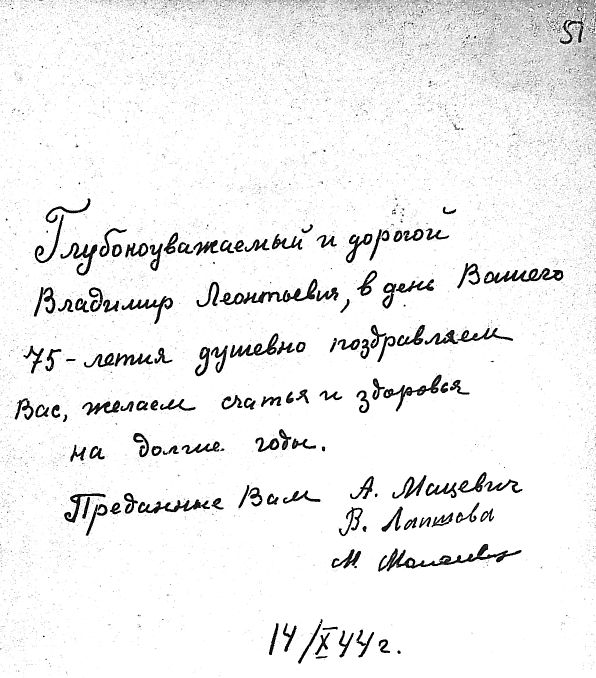 51
Глубокоуважаемый и дорогой
Владимир Леонтьевич, в день Вашего
75-летия душевно поздравляем
Вас, желаем счастья и здоровья
на долгие годы.
Преданные Вам А. Мацевич
В. Лапшова
М.
14/X 44 г.